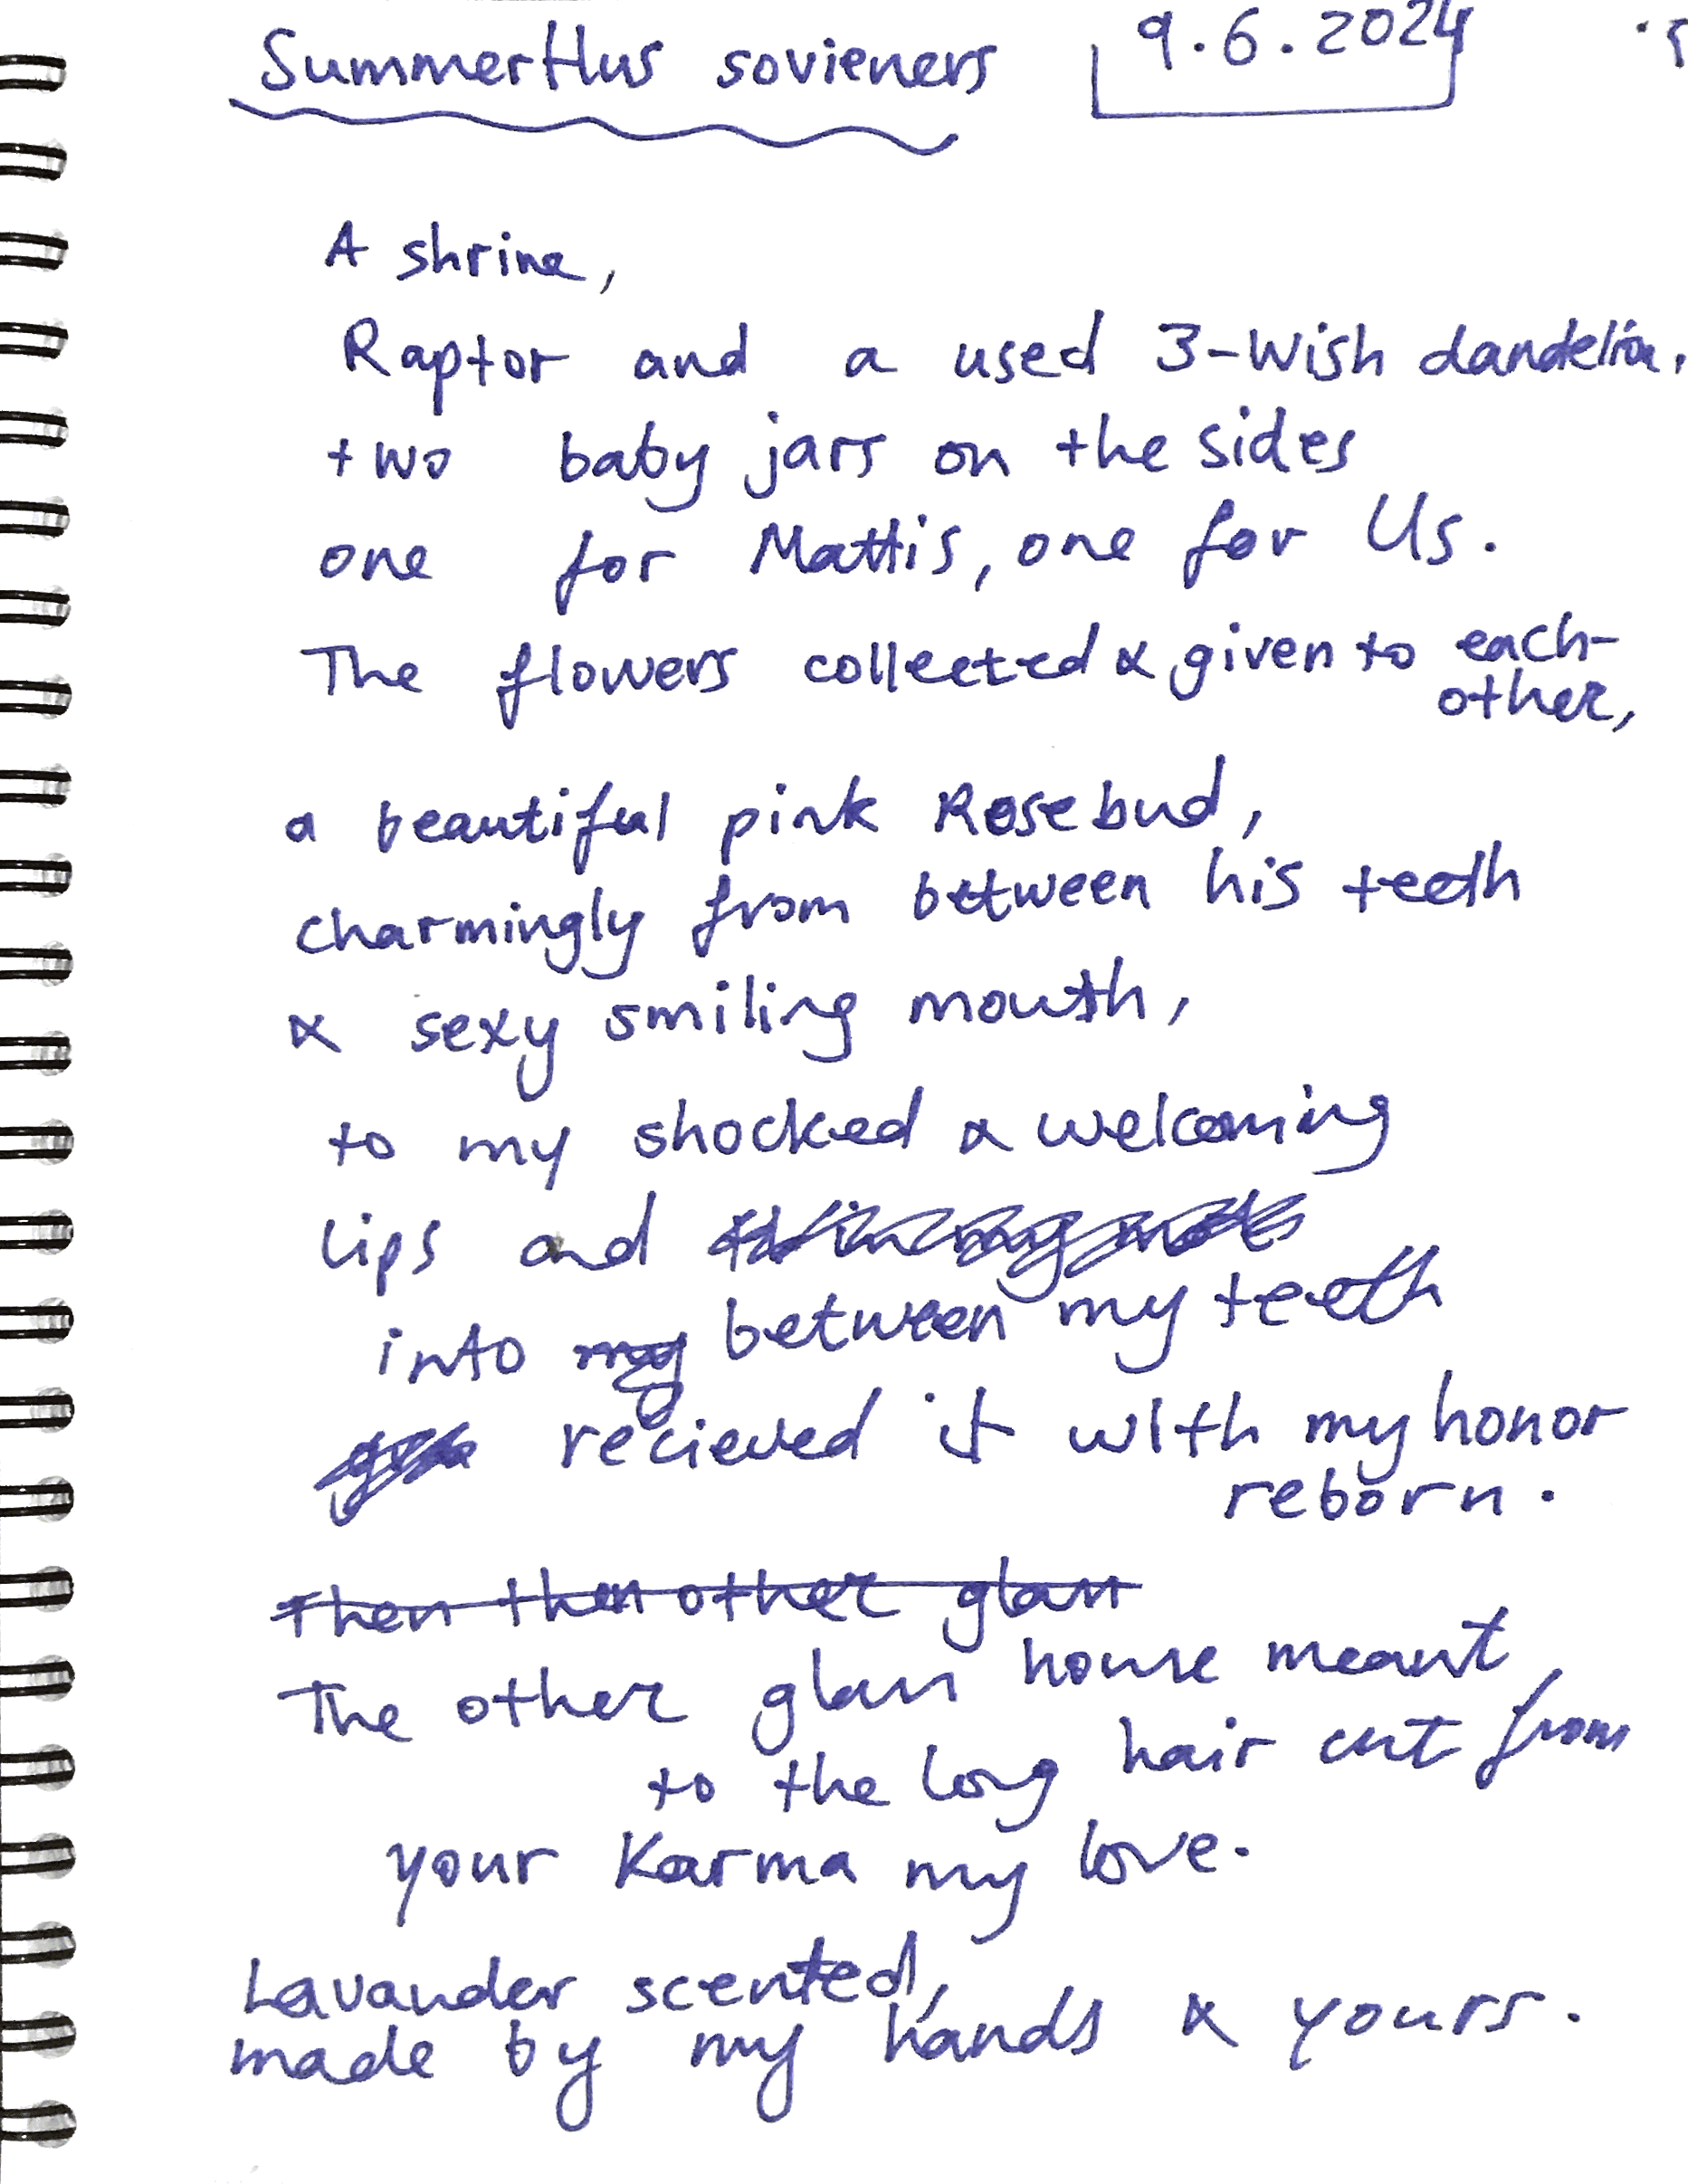 SummerHus sovieners 9.6.2024
A shrine,
Raptor and a used 3-wish dandelion.
two baby jars on the sides
one for Mattis, one for Us.
The flowers collected & given to each-
other,
a beautiful pink Rosebud,
charmingly from between his teeth
& sexy smiling mouth,
to my shocked & welcoming
lips and
into my between my teeth
recieved it with my honor
reborn.
Then then other glass
The other glass house meant
to the long hair cut from
your Karma my love.
Lavander scented,
made by my hands & yours.